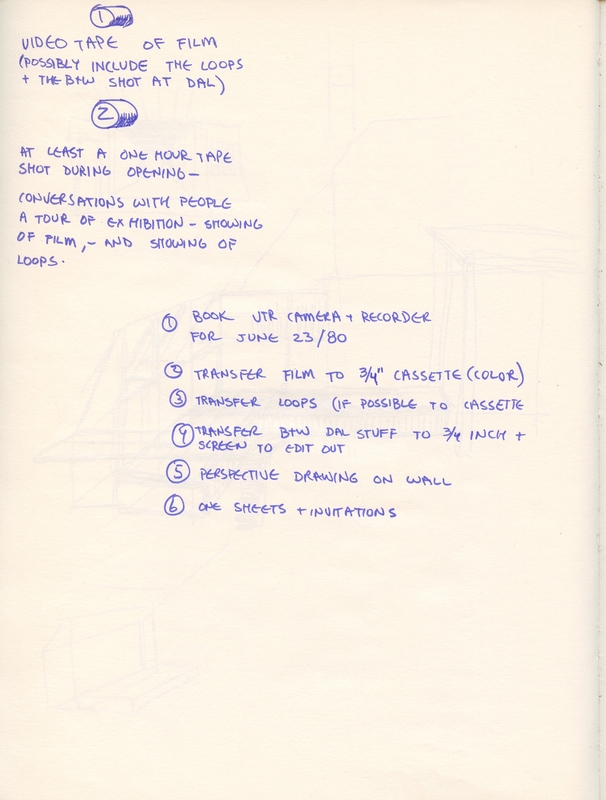 1
VIDEO TAPE OF FILM
(POSSIBLY INCLUDE THE LOOPS
+ THE B+W SHOT AT DAL)
2
AT LEAST A ONE HOUR TAPE
SHOT DURING OPENING—
CONVERSATIONS WITH PEOPLE
A TOUR OF EXHIBITION - SHOWING
OF FILM, - AND SHOWING OF
LOOPS.
1 BOOK VTR CAMERA + RECORDER
FOR JUNE 23/80
2 TRANSFER FILM TO 3/4" CASSETTE (COLOR)
3 TRANSFER LOOPS (IF POSSIBLE TO CASSETTE
4 TRANSFER B+W DAL STUFF TO 3/4 INCH +
SCREEN TO EDIT OUT
5 PERSPECTIVE DRAWING ON WALL
6 ONE SHEETS + INVITATIONS